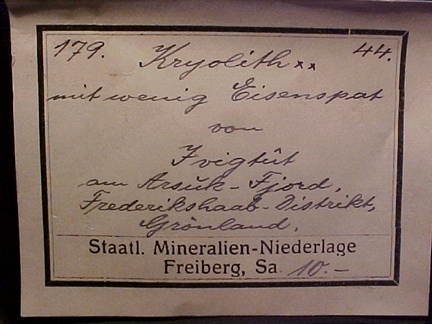 179. Kryolith xx 44.
mit wenig Eisenspat
von
Ivigtût
am Arsuk-Fjord,
Frederikshaab-Distrikt,
Grönland.
Staatl. Mineralien-Niederlage
Freiberg, Sa. 10.-